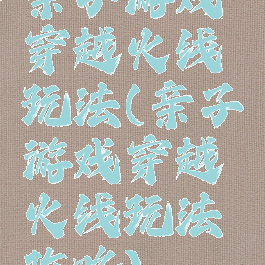 亲子游戏
穿越火线
玩法(亲子
游戏穿越
火线玩法